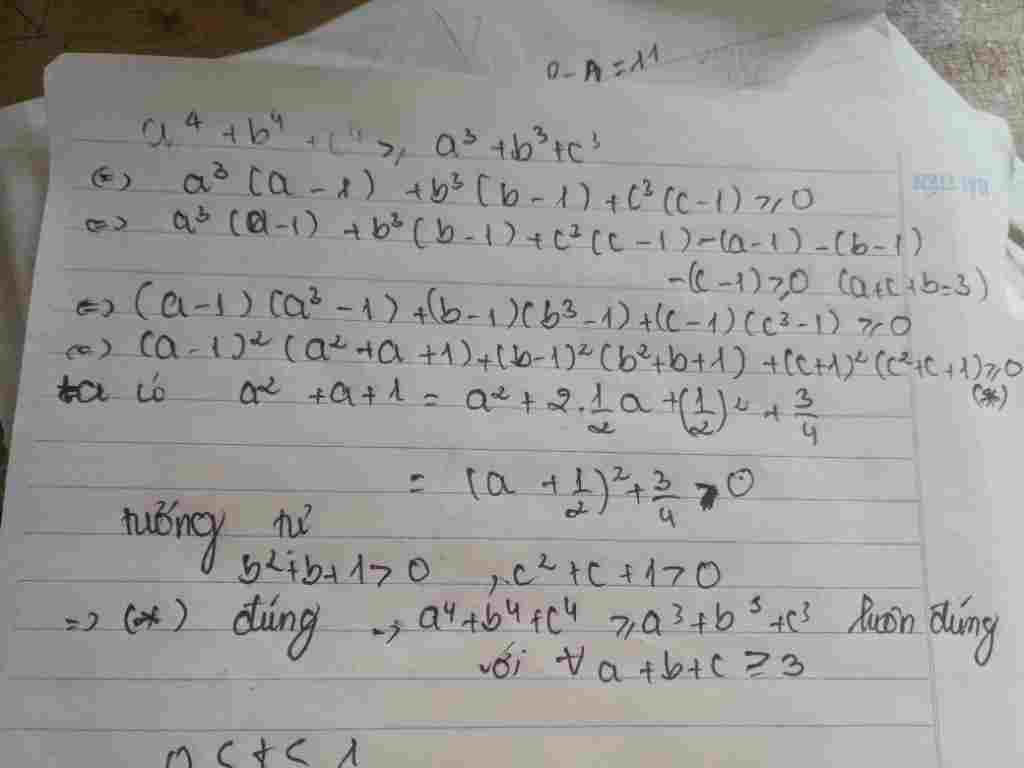 0 - A = 11
a⁴ + b⁴ + c⁴ ≥ a³ + b³ + c³
⇔ a³ (a - 1) + b³ (b - 1) + c³ (c - 1) ≥ 0
⇔ a³ (a - 1) + b³ (b - 1) + c³ (c - 1) - (a - 1) - (b - 1)
- (c - 1) ≥ 0 (a + c + b = 3)
⇔ (a - 1) (a³ - 1) + (b - 1) (b³ - 1) + (c - 1) (c³ - 1) ≥ 0
⇔ (a - 1)² (a² + a + 1) + (b - 1)² (b² + b + 1) + (c + 1)² (c² + c + 1) ≥ 0
(*)
ta có a² + a + 1 = a² + 2 . 1/2 a + (1/2)² + 3/4
= (a + 1/2)² + 3/4 > 0
tướng tự
b² + b + 1 > 0 , c² + c + 1 > 0
=> (*) đúng → a⁴ + b⁴ + c⁴ ≥ a³ + b³ + c³ luôn đúng
với ∀ a + b + c ≥ 3